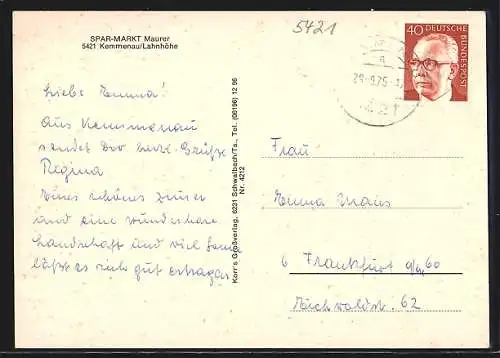 SPAR-MARKT Maurer
5421 Kemmenau/Lahnhöhe
5421
40
DEUTSCHE
BUNDESPOST
29.9.75
Liebe Emma!
Aus Kemmenau
sendet Dir herzl. Grüße
Regina
Ein schönes Zimmer
und eine wunderbare
Landschaft und viel
läßt es sich gut ertragen
Korr's Großverlag, 6231 Schwalbach/Ts., Tel. (06196) 12 96
Nr. 4212
Frau
Emma Maus
6 Frankfurt a/M 60
Eichwaldstr. 62